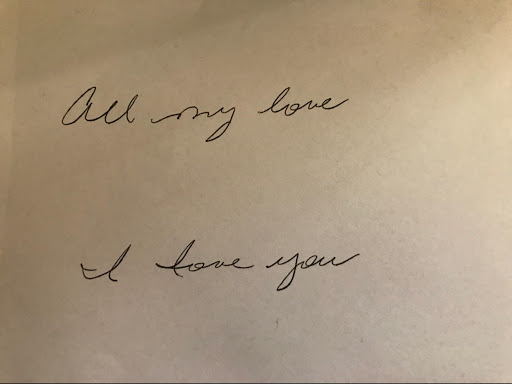 All my love
I love you